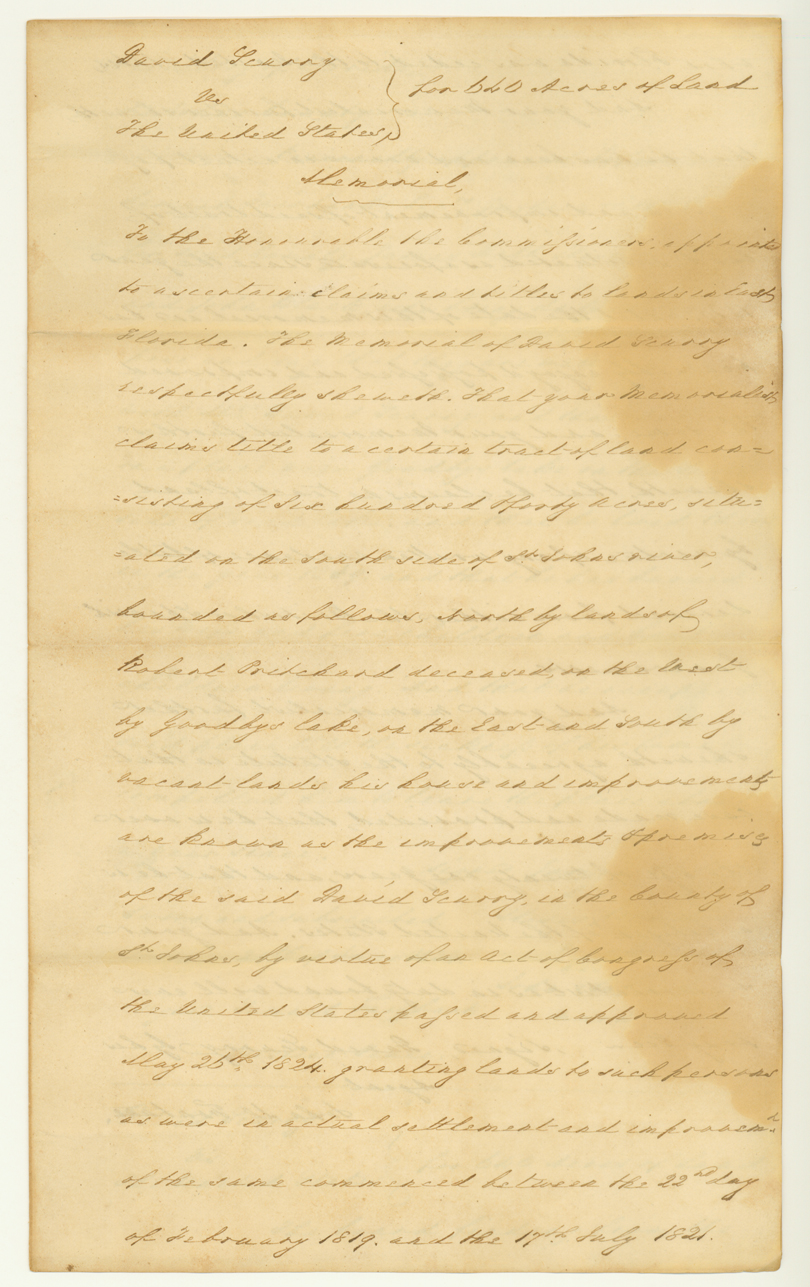 David Scurry
vs
The United States,
for 640 Acres of Land
Memorial,
To the Honourable the Commissioners, appointed
to ascertain claims and titles to lands in East
Florida. The Memorial of David Scurry
respectfully sheweth. That your Memorialist
claims title to a certain tract of land con=
=sisting of Six hundred & forty Acres, situ=
=ated on the South side of St. Johns river,
bounded as follows, North by lands of
Robert Pritchard deceased, on the West
by Goodbys lake, on the East and South by
vacant lands his house and improvements
are known as the improvements & premises
of the said David Scurry, in the County of
St. Johns, by virtue of an Act of Congress of
the United States passed and approved
May 26th 1824. granting lands to such persons
as were in actual settlement and improvemt.
of the same commenced between the 22nd day
of February 1819. and the 17th July 1821.